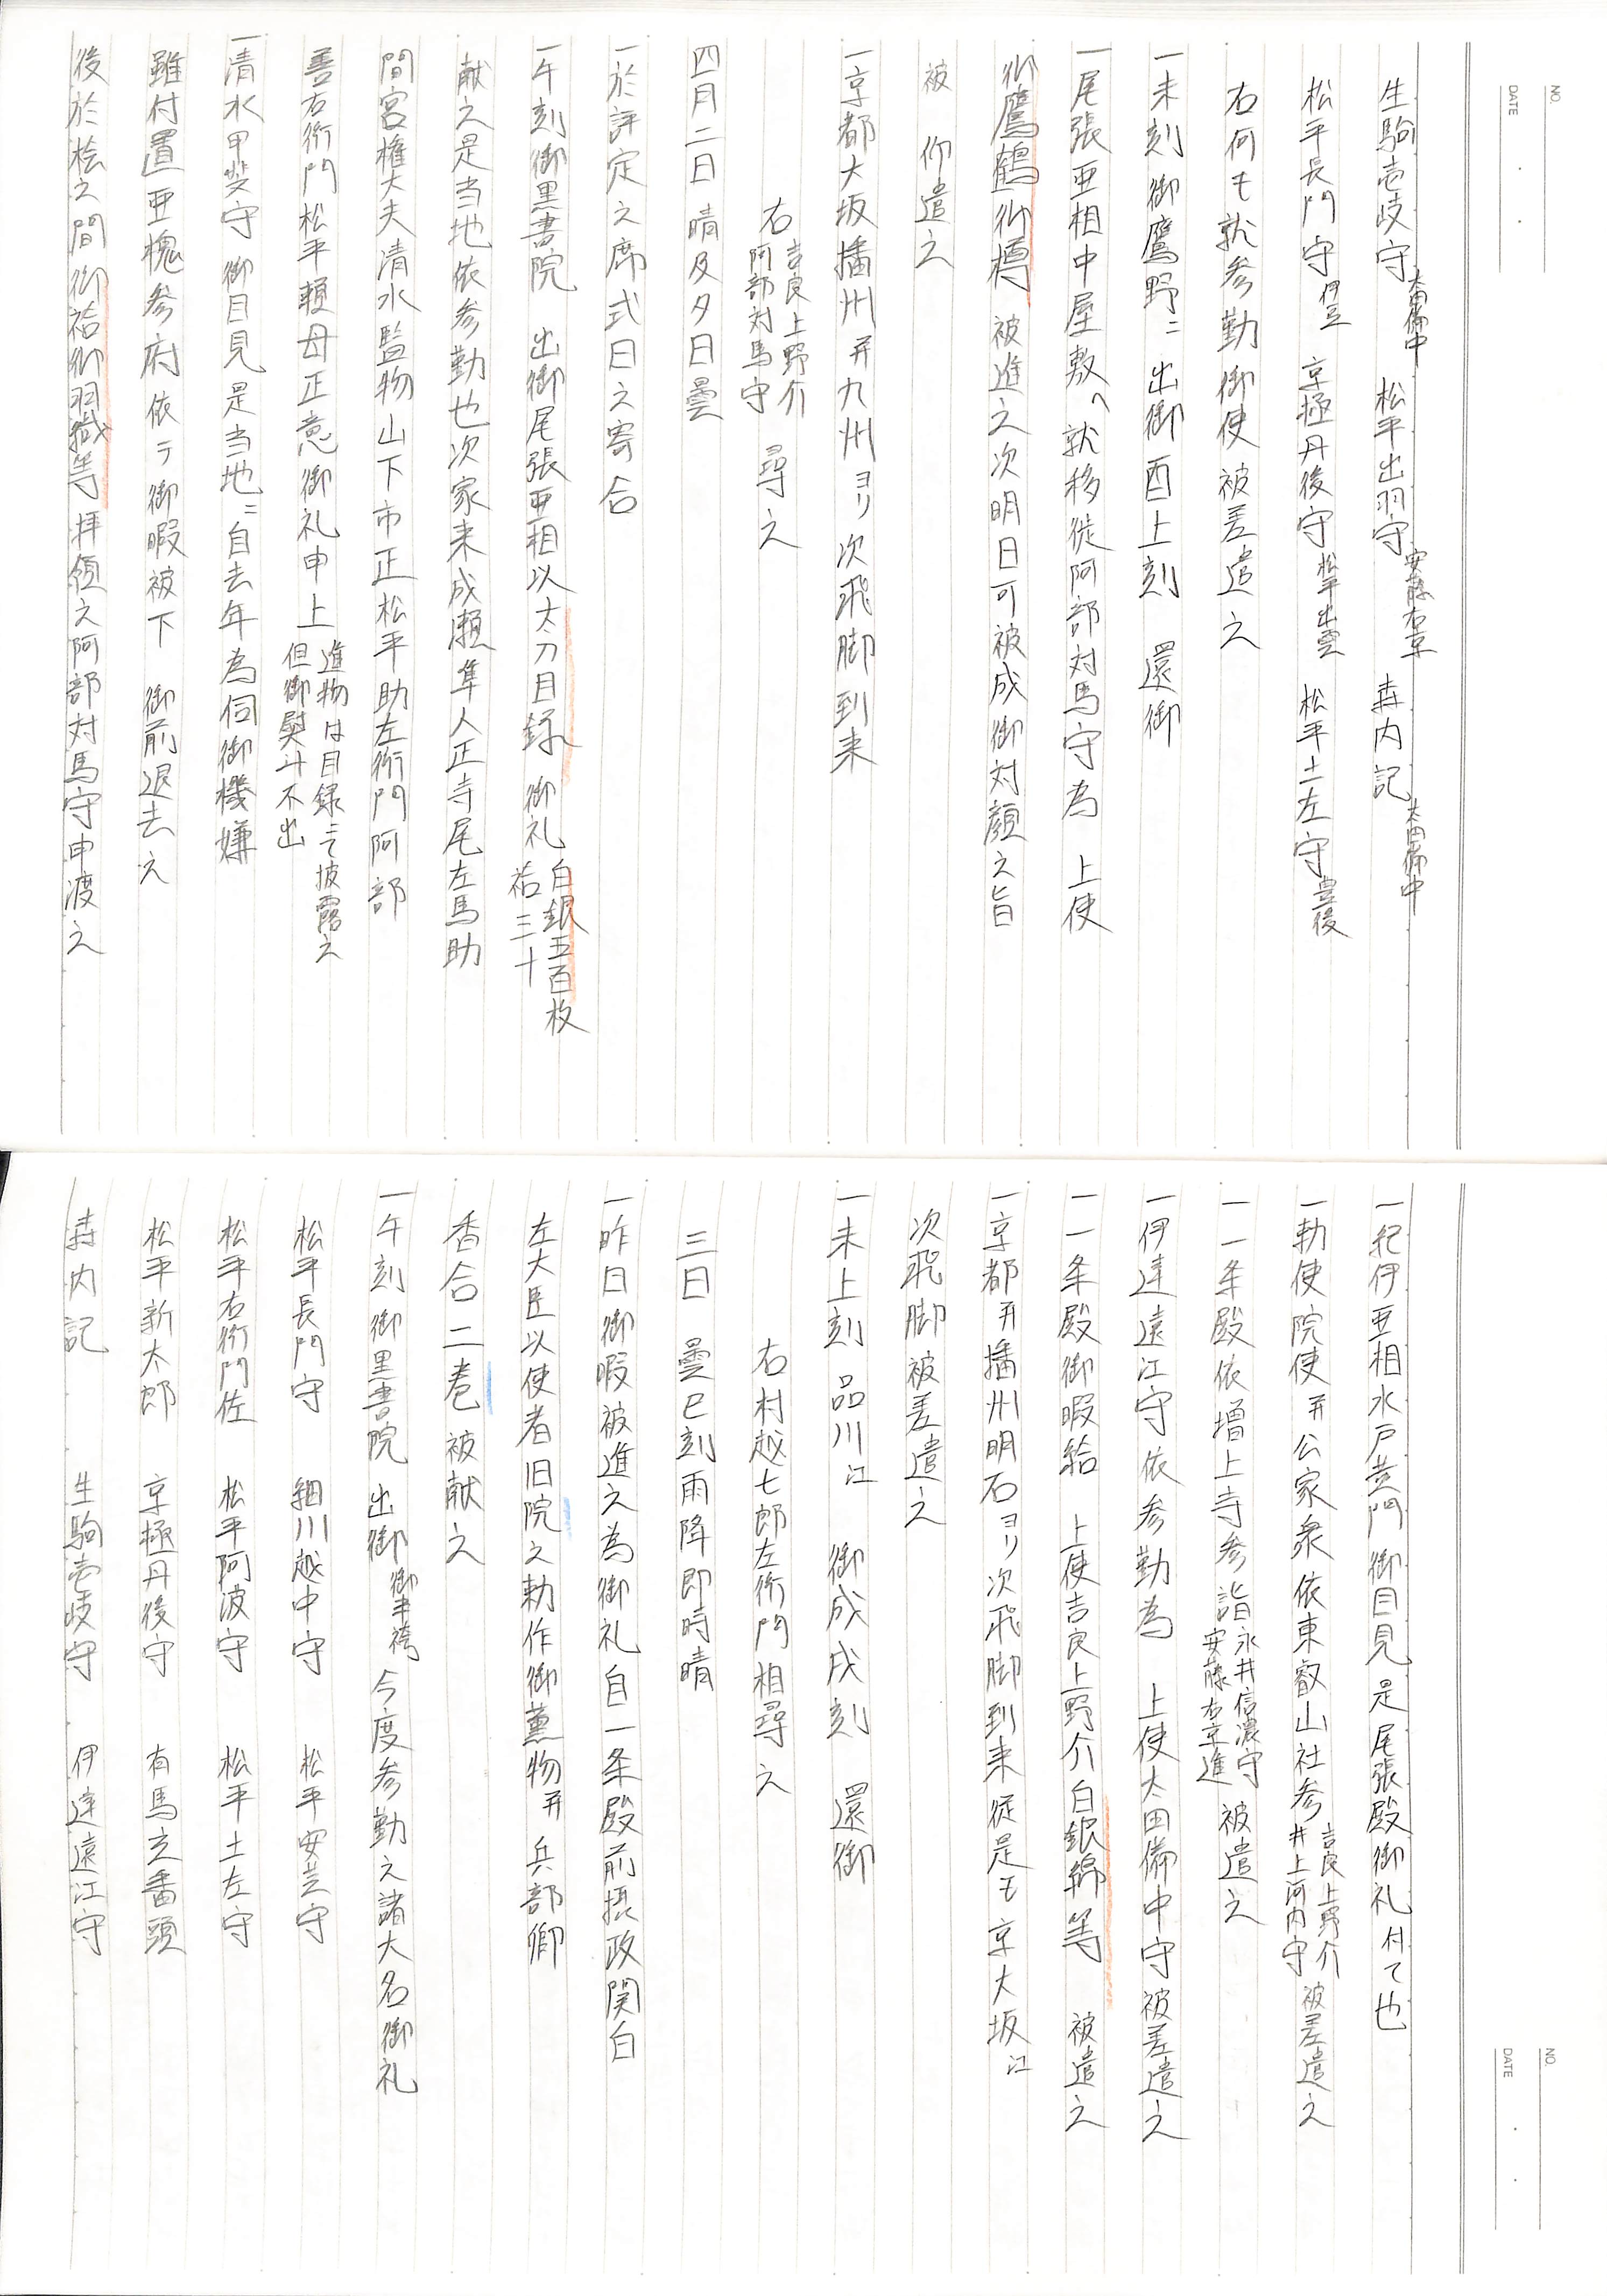 NO.
DATE
生駒壱岐守 太田備中 松平出羽守 安藤右京 森内記 太田備中
松平長門守 伊豆 京極丹後守 松平出雲 松平土左守 豊後
右何も就参勤御使被差遣之
一未刻御鷹野ニ 出御酉上刻 還御
一尾張亜相中屋敷へ就移徙阿部対馬守為 上使
御鷹鶴御樽 被進之次明日可被成御対顔之旨
被 仰遣之
一京都大坂播州并九州ヨリ次飛脚到来
右 吉良上野介 阿部対馬守 尋之
四月二日晴及夕日曇
一於評定之席式日之寄合
一午刻御黒書院 出御尾張亜相以太刀目録 御礼 白銀五百枚 袷三十
献之是当地依参勤也次家来成瀬隼人正寺尾左馬助
間宮権大夫清水監物山下市正松平助左衛門阿部
善右衛門松平頼母正意御礼申上 進物は目録ニて披露之 但御熨斗不出
一清水甲斐守御目見是当地ニ自去年為伺御機嫌
雖付置亜槐参府依テ御暇被下 御前退去之
後於桧之間御袷御羽織等拝領之阿部対馬守申渡之
NO.
DATE
一紀伊亜相水戸黄門御目見是尾張殿御礼付て也
一勅使院使并公家衆依東叡山社参 吉良上野介 井上河内守 被差遣之
一一条殿依増上寺参詣 永井信濃守 安藤右京進 被遣之
一伊達遠江守依参勤為 上使太田備中守被差遣之
一一条殿御暇給 上使吉良上野介白銀綿等 被遣之
一京都并播州明石ヨリ次飛脚到来従是も京大坂江
次飛脚被差遣之
一未上刻品川江 御成戌刻 還御
右村越七郎左衛門相尋之
三日 曇巳刻雨降即時晴
一昨日御暇被進之為御礼自一条殿前摂政関白
左大臣以使者旧院之勅作御薫物并兵部卿
香合二巻被献之
一午刻御黒書院出御 御半袴 今度参勤之諸大名御礼
松平長門守 細川越中守 松平安芸守
松平右衛門佐 松平阿波守 松平土左守
松平新太郎 京極丹後守 有馬玄番頭
森内記 生駒壱岐守 伊達遠江守